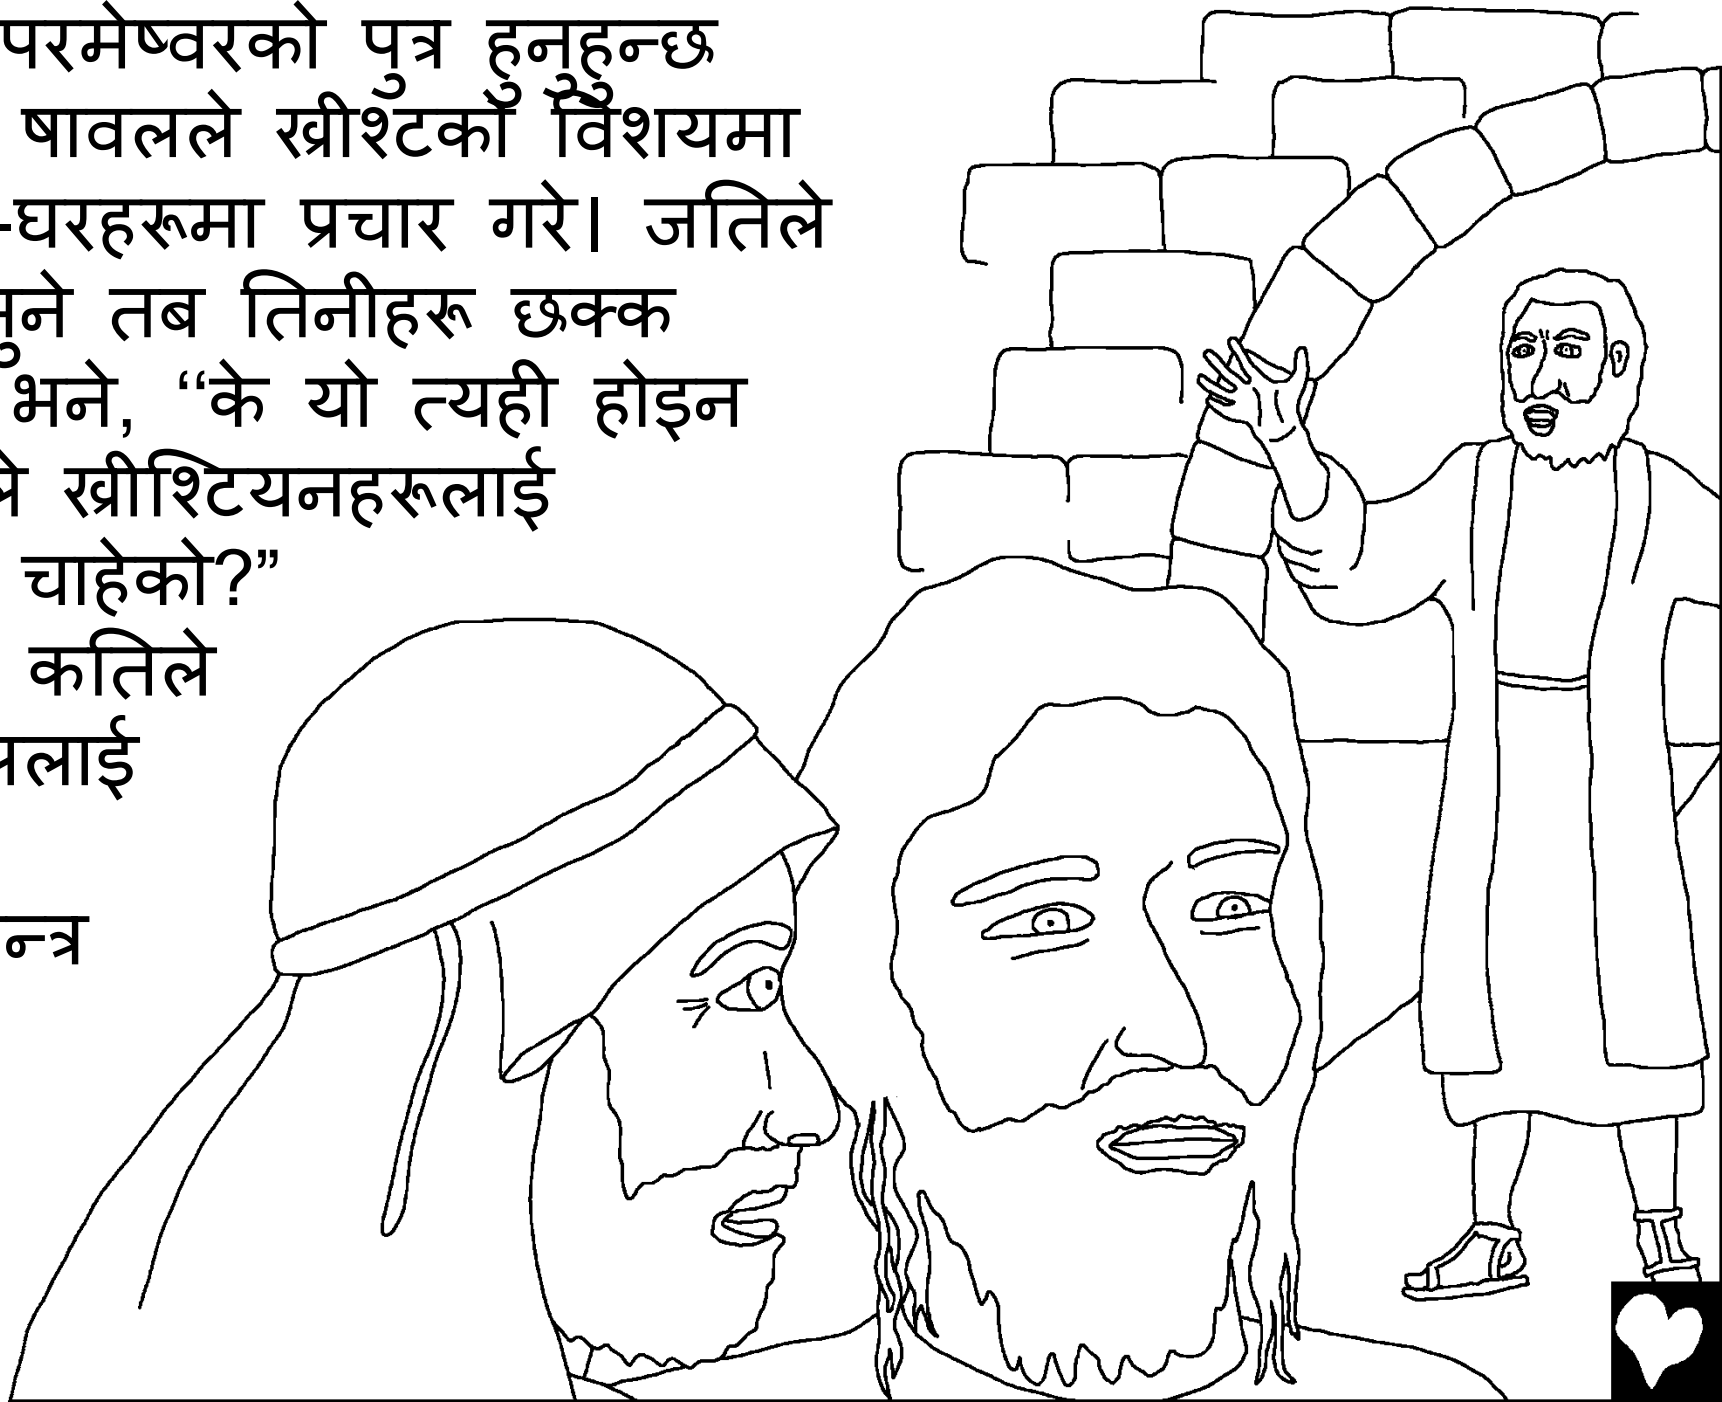 परमेष्वरको पुत्र हुनुहुन्छ
षावलले ख्रीश्टको विशयमा
-घरहरूमा प्रचार गरे। जतिले
तब तिनीहरू छक्क
भने, “के यो त्यही होइन
ख्रीश्टियनहरूलाई
चाहेको?”
कतिले